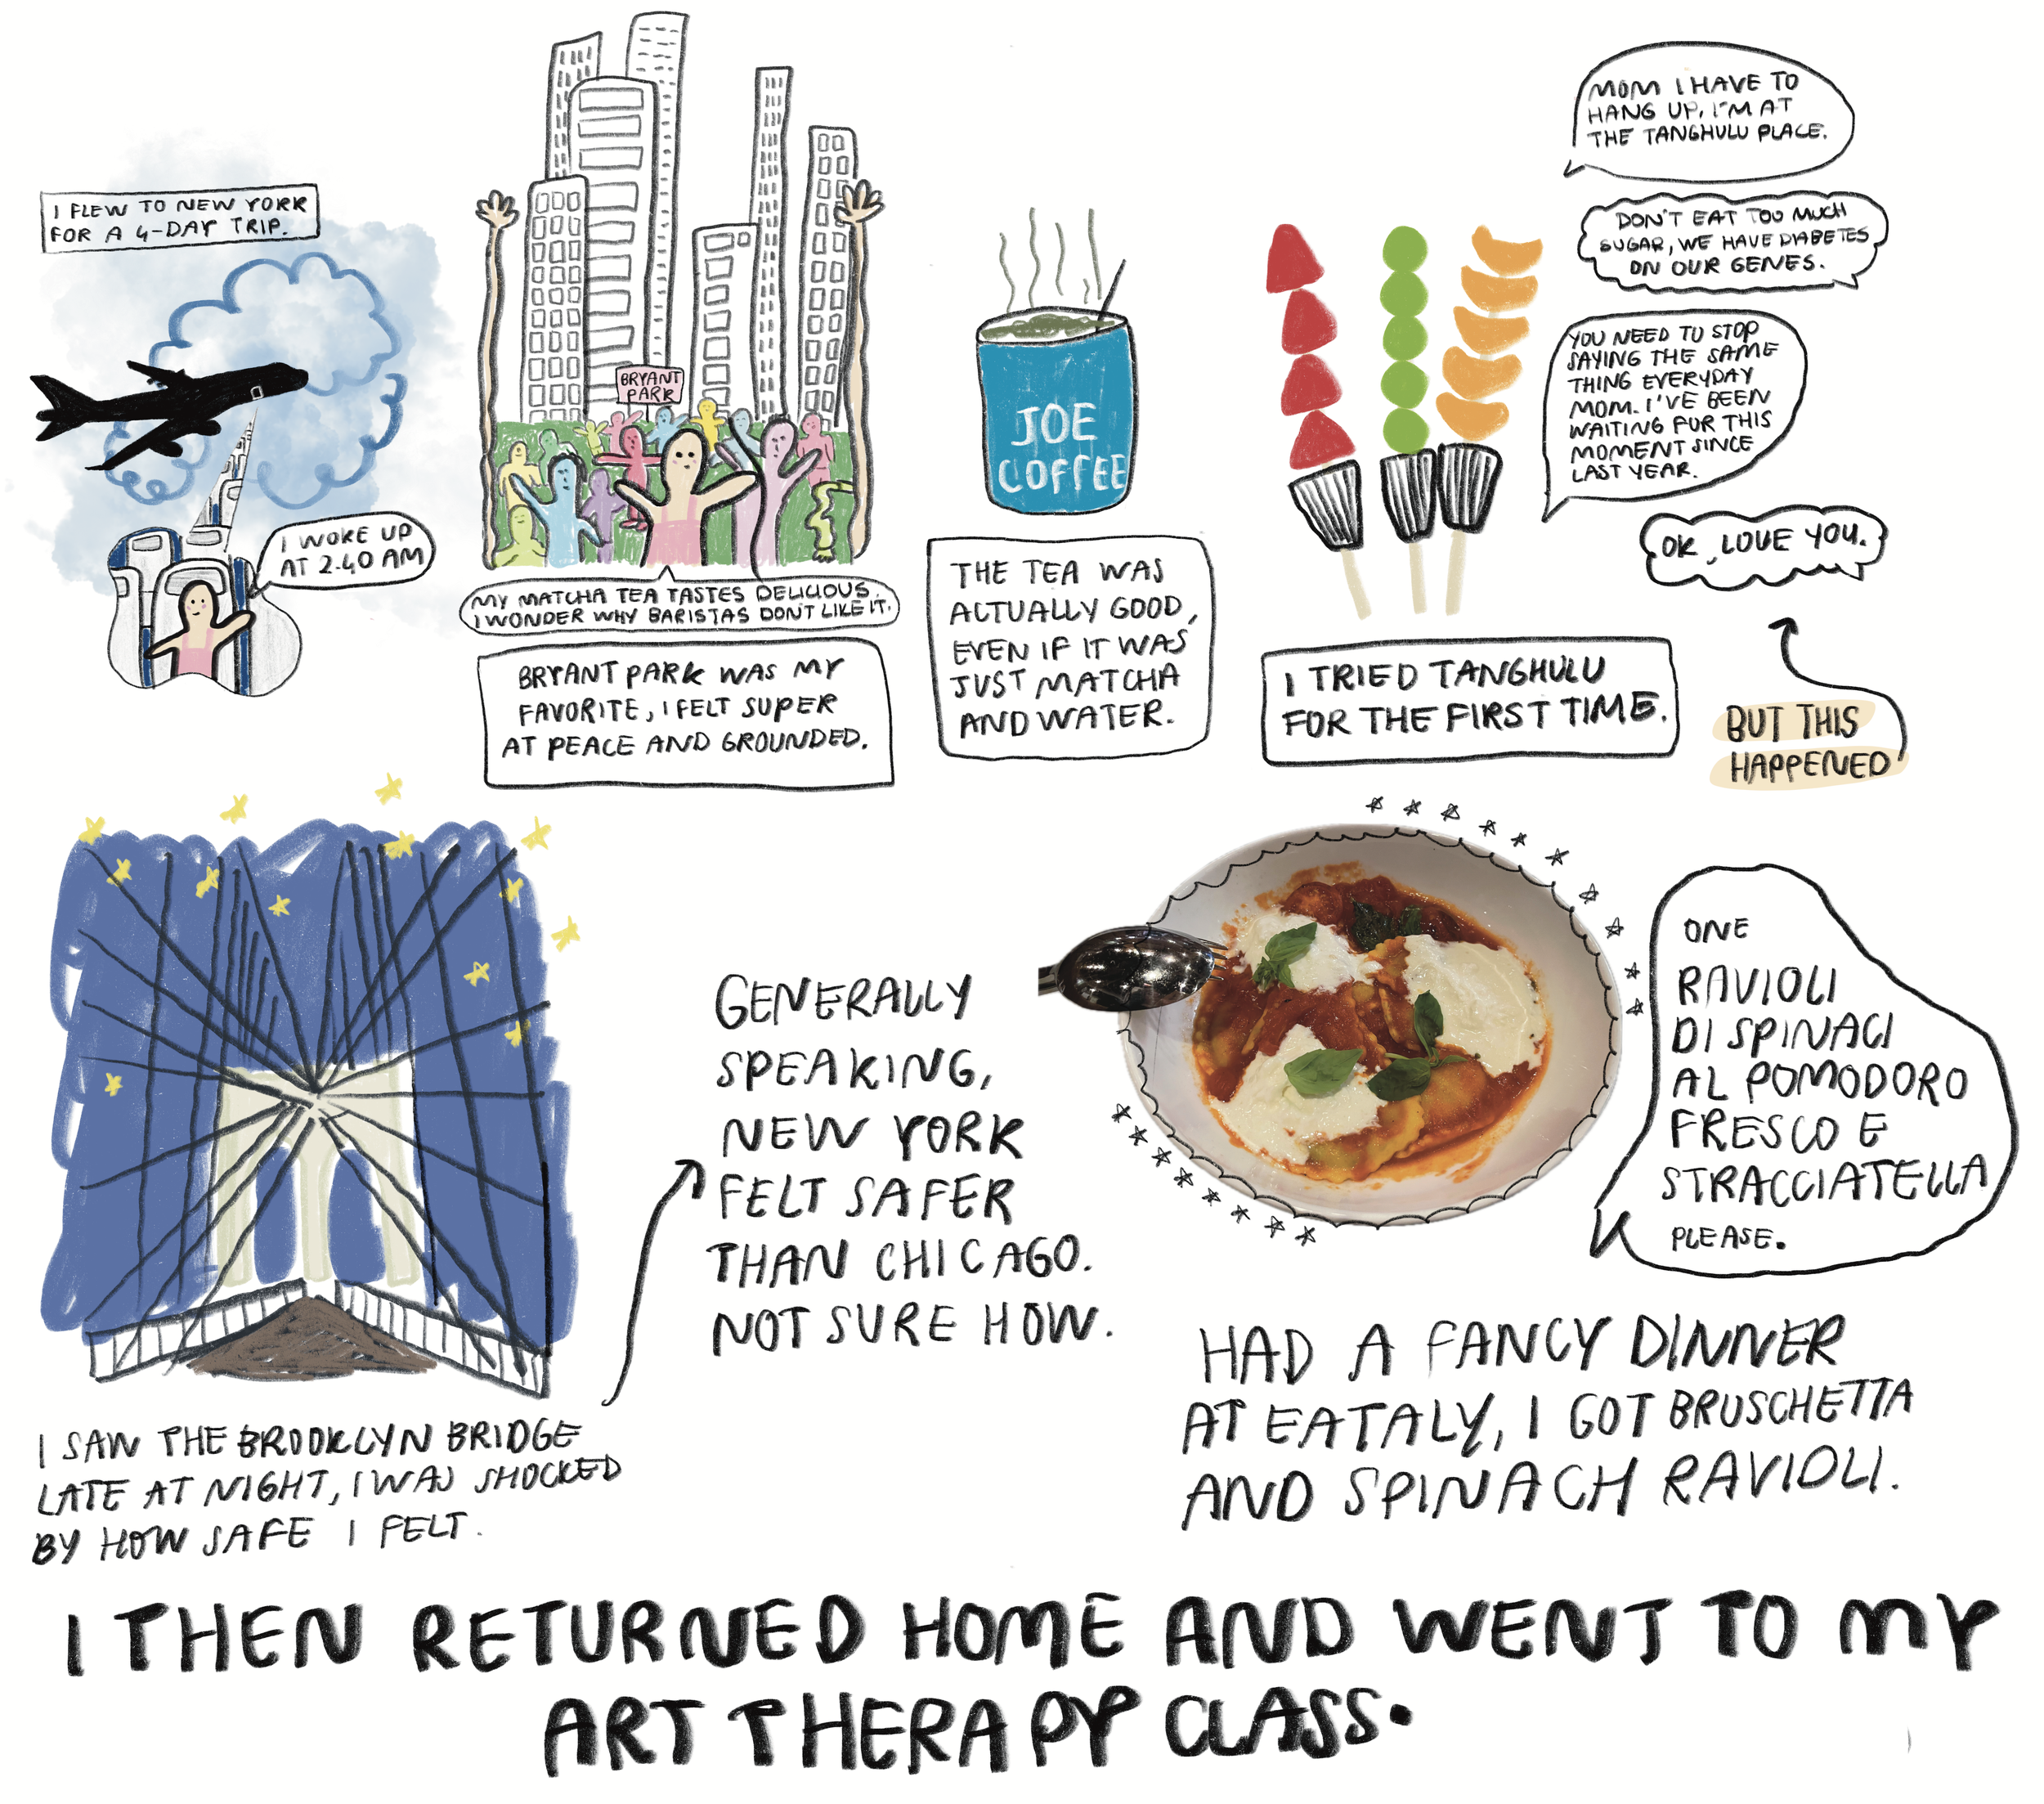 I FLEW TO NEW YORK
FOR A 4-DAY TRIP.
I WOKE UP
AT 2.40 AM
BRYANT
PARK
MY MATCHA TEA TASTES DELICIOUS,
I WONDER WHY BARISTAS DON'T LIKE IT.
BRYANT PARK WAS MY
FAVORITE, I FELT SUPER
AT PEACE AND GROUNDED.
JOE
COFFEE
THE TEA WAS
ACTUALLY GOOD,
EVEN IF IT WAS
JUST MATCHA
AND WATER.
MOM I HAVE TO
HANG UP, I'M AT
THE TANGHULU PLACE.
DON'T EAT TOO MUCH
SUGAR, WE HAVE DIABETES
ON OUR GENES.
YOU NEED TO STOP
SAYING THE SAME
THING EVERYDAY
MOM. I'VE BEEN
WAITING FOR THIS
MOMENT SINCE
LAST YEAR.
OK, LOVE YOU.
I TRIED TANGHULU
FOR THE FIRST TIME.
BUT THIS
HAPPENED
I SAW THE BROOKLYN BRIDGE
LATE AT NIGHT, I WAS SHOCKED
BY HOW SAFE I FELT.
GENERALLY
SPEAKING,
NEW YORK
FELT SAFER
THAN CHICAGO.
NOT SURE HOW.
ONE
RAVIOLI
DI SPINACI
AL POMODORO
FRESCO E
STRACCIATELLA
PLEASE.
HAD A FANCY DINNER
AT EATALY, I GOT BRUSCHETTA
AND SPINACH RAVIOLI.
I THEN RETURNED HOME AND WENT TO MY
ART THERAPY CLASS.